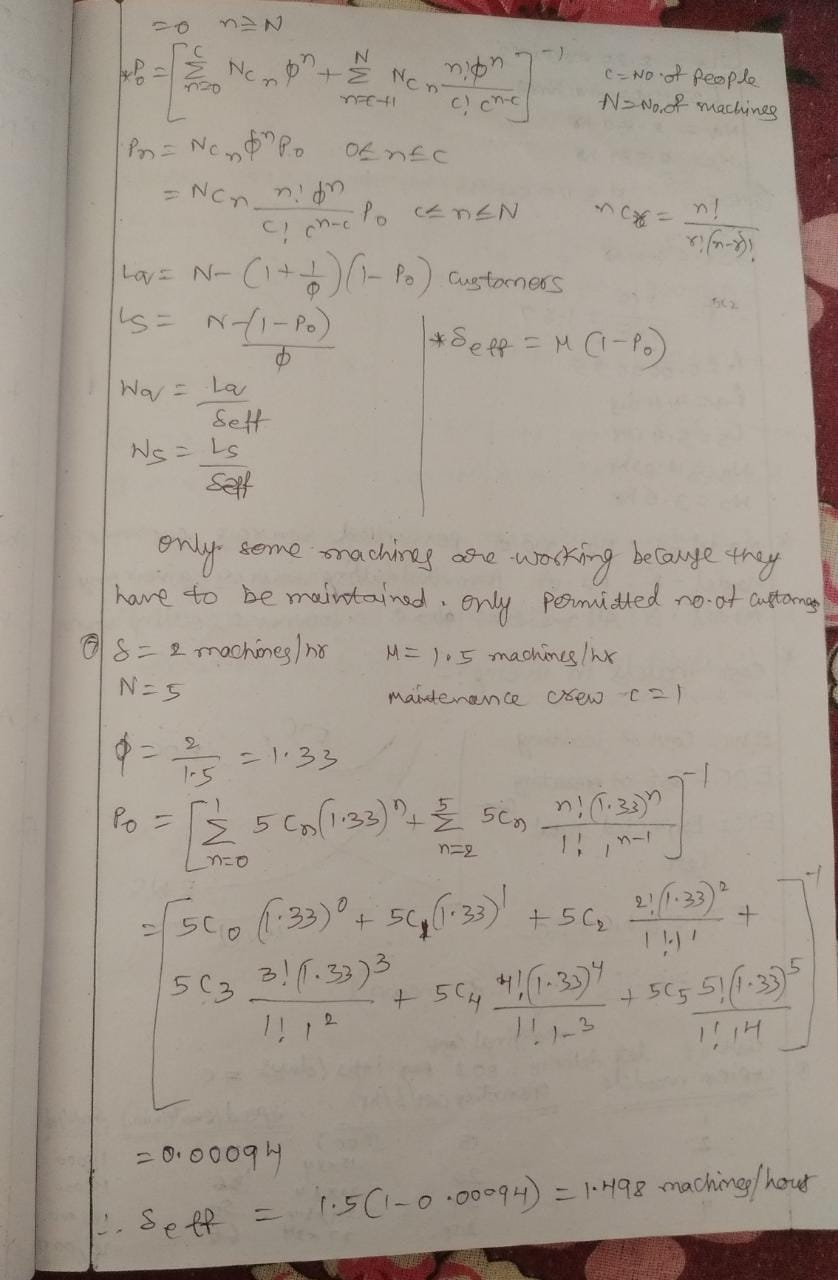 =0 n≥N
*P₀ = [ C Σ n=0 Ncₙ φⁿ + N Σ n=c+1 Ncₙ n!φⁿ / c! cⁿ⁻ᶜ ]⁻¹ c = No. of people
N = No. of machines
Pn = Ncₙ φⁿ P₀ 0≤n≤c
= Ncₙ n! φⁿ / c! cⁿ⁻ᶜ P₀ c≤n≤N ncᵣ = n! / r!(n-r)!
Lq = N - (1 + 1/φ)(1 - P₀) customers
5c2
Ls = N - (1-P₀) / φ *δeff = M (1-P₀)
Wq = Lq / δeff
Ws = Ls / δeff
only some machines are working because they
have to be maintained. only permitted no. of customers
δ = 2 machines/hr M = 1.5 machines/hr
N = 5 maintenance crew c = 1
φ = 2 / 1.5 = 1.33
P₀ = [ 1 Σ n=0 5Cn (1.33)ⁿ + 5 Σ n=2 5Cn n! (1.33)ⁿ / 1! 1ⁿ⁻¹ ]⁻¹
= [ 5C₀ (1.33)⁰ + 5C₁ (1.33)¹ + 5C₂ 2! (1.33)² / 1! 1¹ +
5C3 3! (1.33)³ / 1! 1² + 5C₄ 4! (1.33)⁴ / 1! 1-³ + 5C5 5! (1.33)⁵ / 1! 14 ]⁻¹
= 0.00094
∴ δeff = 1.5 (1-0.00094) = 1.498 machines/hour